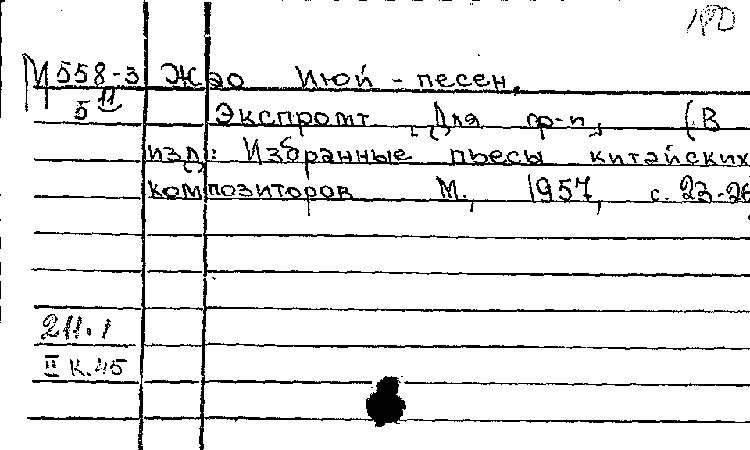 М 558-3 Жао Июй-песен.
5 II Экспромт. Для ф-п. (В
изд.: Избранные пьесы китайских
композиторов М., 1957, с. 23-26
211.1
II К.45